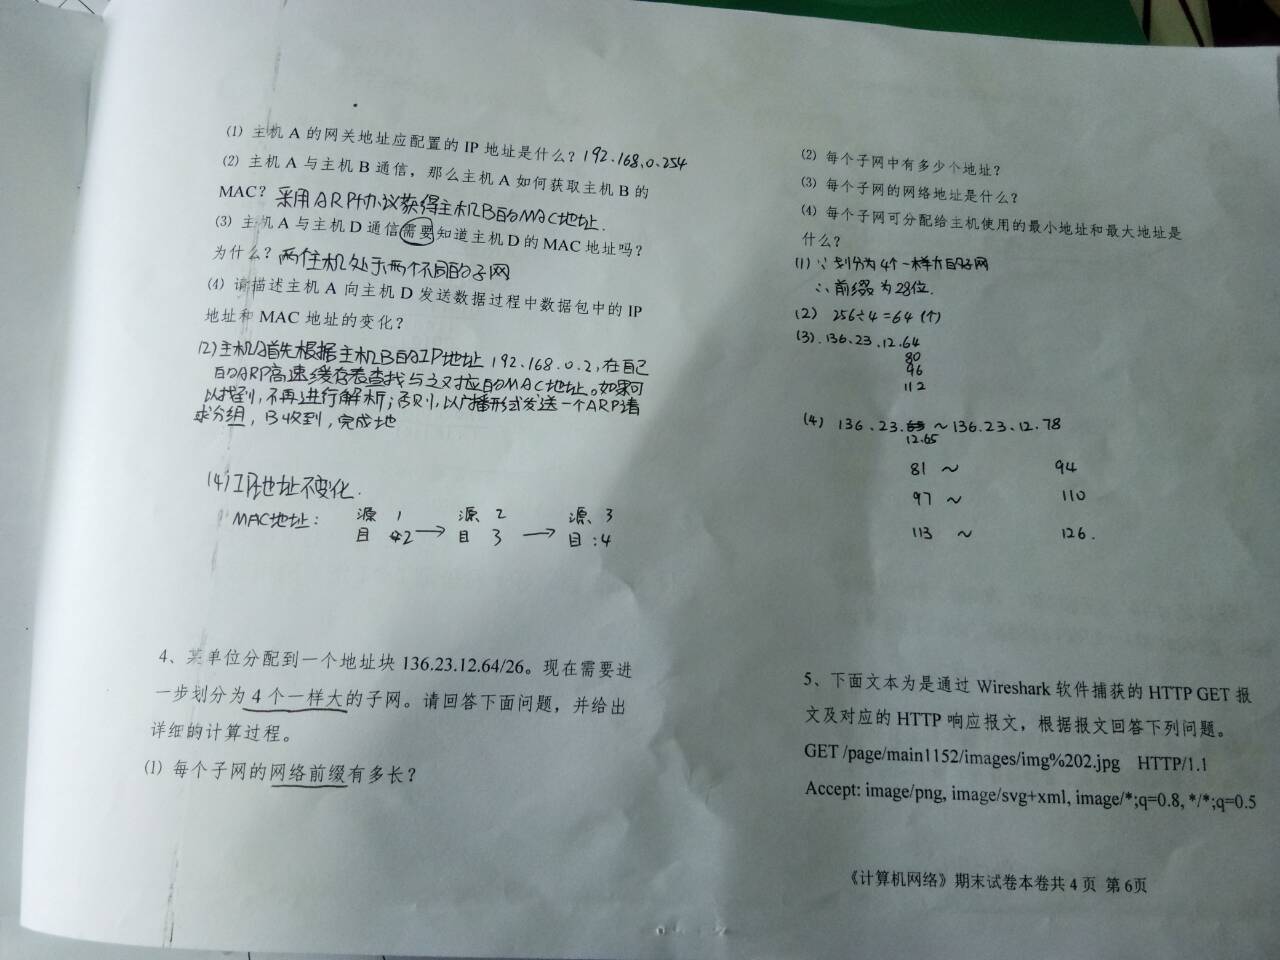 (1) 主机 A 的网关地址应配置的 IP 地址是什么? 192.168.0.254
(2) 主机 A 与主机 B 通信，那么主机 A 如何获取主机 B 的
MAC? 采用ARP协议获得主机B的MAC地址.
(3) 主机 A 与主机 D 通信需要知道主机 D 的 MAC 地址吗?
为什么? 两住机处于两个不同的子网
(4) 请描述主机 A 向主机 D 发送数据过程中数据包中的 IP
地址和 MAC 地址的变化?
(2) 主机A首先根据主机B的IP地址 192.168.0.2, 在自己
的ARP高速缓存表查找与之对应的MAC地址。如果可
以找到, 不再进行解析; 否则, 以广播形式发送一个ARP请
求分组, B收到, 完成地
(4) IP地址不变化.
MAC地址: 源 1 源 2 源 3
目 2 → 目 3 → 目:4
4、某单位分配到一个地址块 136.23.12.64/26。现在需要进
一步划分为 4 个一样大的子网。请回答下面问题，并给出
详细的计算过程。
(1) 每个子网的网络前缀有多长?
(2) 每个子网中有多少个地址?
(3) 每个子网的网络地址是什么?
(4) 每个子网可分配给主机使用的最小地址和最大地址是
什么?
(1) ∵ 划分为4个一样大的子网
∴ 前缀为28位.
(2) 256÷4=64 (个)
(3). 136.23.12.64
80
96
112
(4) 136.23. ~ 136.23.12.78
12.65
81 ~ 94
97 ~ 110
113 ~ 126.
5、下面文本为是通过 Wireshark 软件捕获的 HTTP GET 报
文及对应的 HTTP 响应报文，根据报文回答下列问题。
GET /page/main1152/images/img%202.jpg HTTP/1.1
Accept: image/png, image/svg+xml, image/*;q=0.8, */*;q=0.5
《计算机网络》期末试卷本卷共 4 页 第 6页